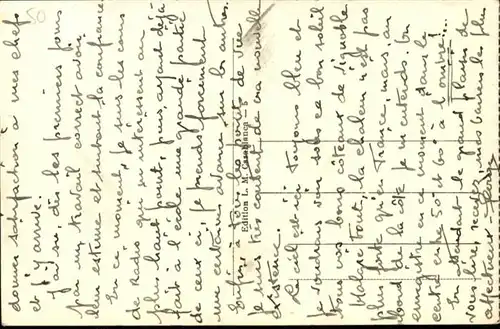 donner satisfaction à mes chefs
et j'y arrive.
J'ai su, dès les premiers jours
par un travail correct avoir
leur estime et surtout la confiance
En ce moment, je suis les cours
de Radio qui m'intéressent au
plus haut point, puis, ayant déjà
fait à l'école une grande partie
de ceux ci je prends forcément
une certaine avance sur les autres.
Enfin, à tous les points de vue
je suis très content de ma nouvelle
existence.
Edition L. M. Casablanca - 5
Le ciel est ici toujours bleu et
je voudrais voir sous ce bon soleil
tous vos bons coteaux de vignoble
Malgré tout, la chaleur n'est pas
plus forte qu'en France, mais, au
bord de la côte je m'entends. On
enregistre en ce moment dans le
centre entre 50° et 60° à l'ombre!
En attendant le grand plaisir de
vous lire, recevez, mes baisers les plus
affectueux